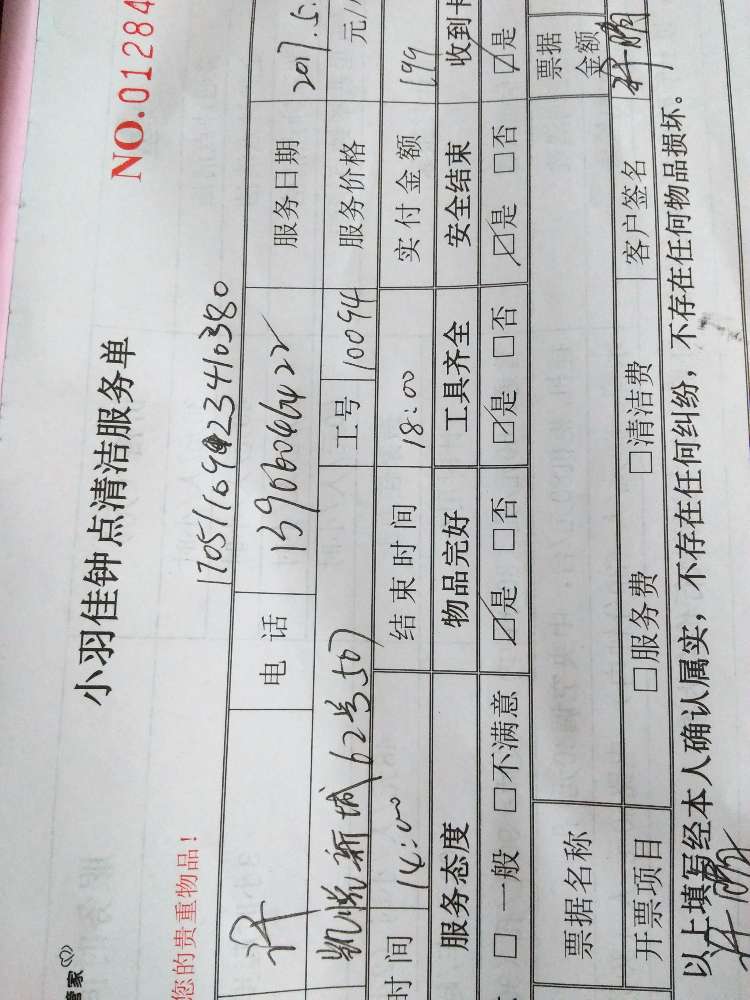 管家
小羽佳钟点清洁服务单
NO.01284
您的贵重物品！
许 电话 13906046422 服务日期 2017.5.
凯悦新城62号507 工号 10094 服务价格 元/
时间 14:00 结束时间 18:00 实付金额 199
服务态度 物品完好 工具齐全 安全结束 收到卡
□一般 □不满意 ☑是 □否 ☑是 □否 ☑是 □否 ☑是
票据名称 票据金额
开票项目 □服务费 □清洁费 客户签名 许鹏
以上填写经本人确认属实，不存在任何纠纷，不存在任何物品损坏。
许鹏